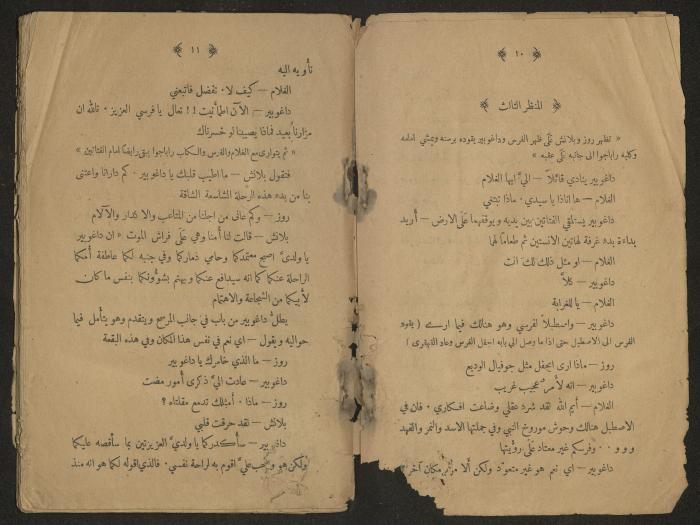 ١٠
المنظر الثالث
« تظهر روز وبلانش على ظهر الفرس وداغوبير يقوده برسنه ويمشي امامه
وكلبه راباجوا الى جانبه على عقبه »
داغوبير ينادي قائلاً — اليَّ ايها الغلام
الغلام — ها انا ذا يا سيدي. ماذا تبتغي
داغوبير يستلقي الفتاتين بين يديه ويوقفهما على الارض — أريد
بداءة بدء غرفة لهاتين الانستين ثم طعاماً لهما
الغلام — او مثل ذلك لك انت
داغوبير — كلاَّ
الغلام — يا للغرابة
داغوبير — واسطبلاً لفرسي وهو هنالك فيما ارى ( يقود
الفرس الى الاصطبل حتى اذا ما وصل الى بابه اجفل الفرس وعاد القهقرى )
روز — ماذا ارى ايجفل مثل جوفيال الوديع
داغوبير — انه لأمر عجيب غريب
الغلام — أيم الله لقد شرد عقلي وضاعت افكاري. فان في
الاصطبل هنالك وحوش موروخ النبي وفي جملتها الاسد والنمر والفهد
و و و . . وفرسكم غير معتاد على رؤيتها
داغوبير — اي نعم هو غير متعوّد ولكن ألا من مكان آخر
١١
نأويه اليه
الغلام — كيف لا. تفضل فاتبعني
داغوبير — الآن اطمأنيت !! تعال يا فرسي العزيز. تالله ان
مزارنا بعيد فماذا يصيبنا لو خسرناك
« ثم يتوارى مع الغلام والفرس والكلب راباجوا يبقى رابضاً امام الفتاتين »
فتقول بلانش — ما اطيب قلبك يا داغوبير. كم دارانا واعتنى
بنا من بدء هذه الرحلة الشاسعة الشاقة
روز — وكم عانى من اجلنا من المتاعب والاكدار والآلام
بلانش — قالت لنا أمنا وهي على فراش الموت « ان داغوبير
يا ولديَّ اصبح معتمدكما وحامي ذماركما وفي جنبه لكما عاطفة أمكما
الراحلة عنكما كما انه سيدافع عنكما ويهتم بشؤونكما بنفس ما كان
لأبيكما من الشجاعة والاهتمام
يطلُّ داغوبير من باب في جانب المرسح ويتقدم وهو يتأمل فيما
حواليه ويقول — اي نعم في نفس هذا المكان وفي هذه البقعة
روز — ما الذي خامرك يا داغوبير
داغوبير — عادت اليَّ ذكرى أمور مضت
روز — ماذا. أمثلك تدمع مقلتاه ؟
بلانش — لقد حرقت قلبي
داغوبير — سأكدركما يا ولديَّ العزيزتين بما سأقصه عليكما
ولكن هو واجب عليَّ اقوم به لراحة نفسي. فالذي اقوله لكما هو انه منذ